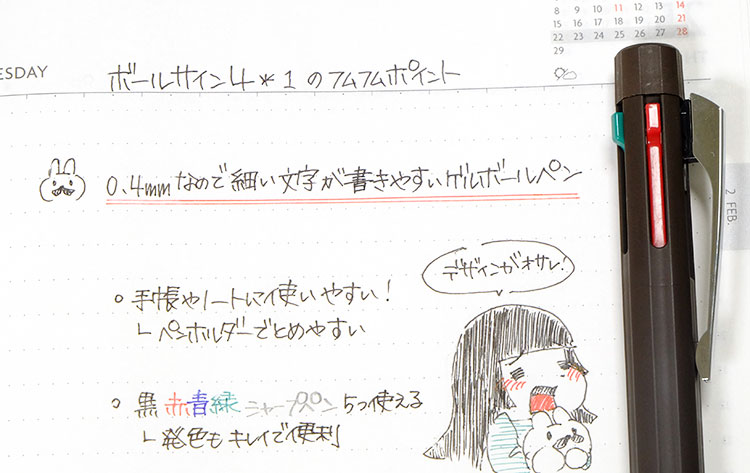 8 9 10 11 12 13 14
15 16 17 18 19 20 21
22 23 24 25 26 27 28
29
ESDAY
ボールサイン4*1のフムフムポイント
0.4mmなので細い文字が書きやすいゲルボールペン
2 FEB.
デザインがオサレ!
手帳やノートに使いやすい!
ペンホルダーでとめやすい
黒赤青緑シャープペン5つ使える
発色もキレイで便利